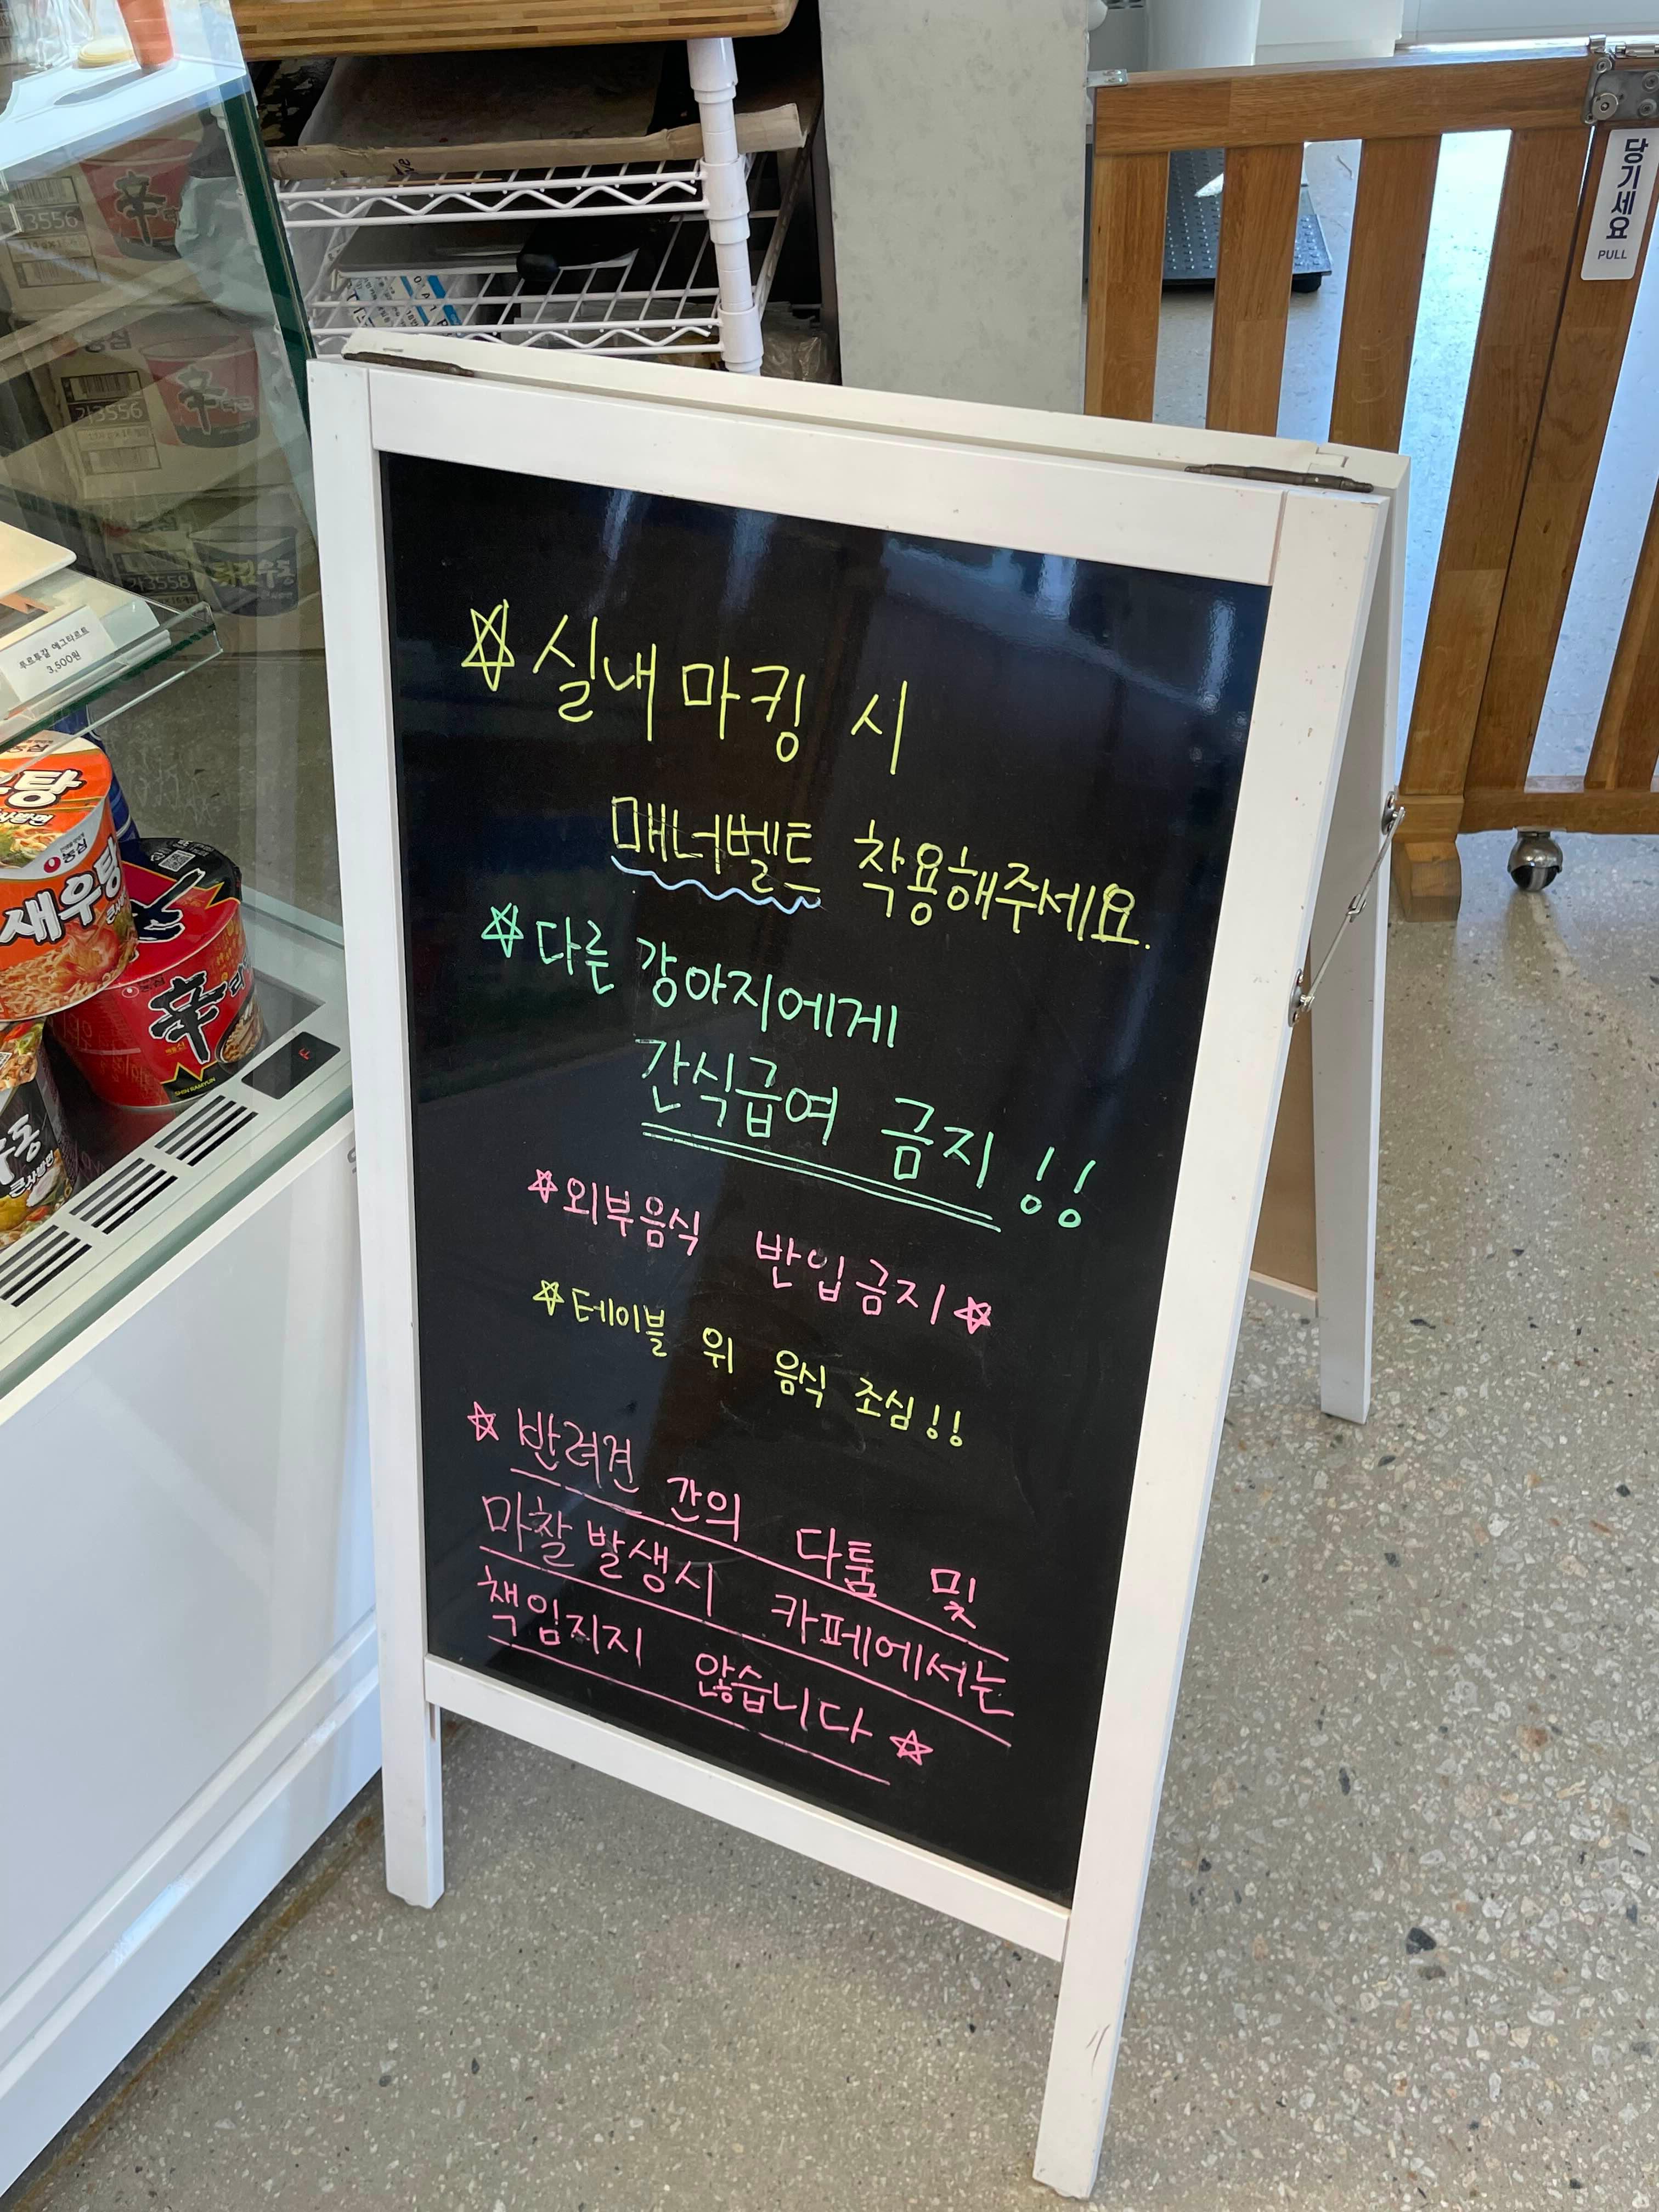 당기세요
PULL
3556
각3556
각3558
튀김우동
푸르투갈 에그타르트
3,500원
탕
농심
새우탕
큰사발면
농심
辛
SHIN RAMYUN
동
큰사발면
F
☆실내 마킹 시
매너벨트 착용해주세요.
☆다른 강아지에게
간식급여 금지!!
☆외부음식 반입금지☆
☆테이블 위 음식 조심!!
☆반려견 간의 다툼 및
마찰 발생시 카페에서는
책임지지 않습니다☆